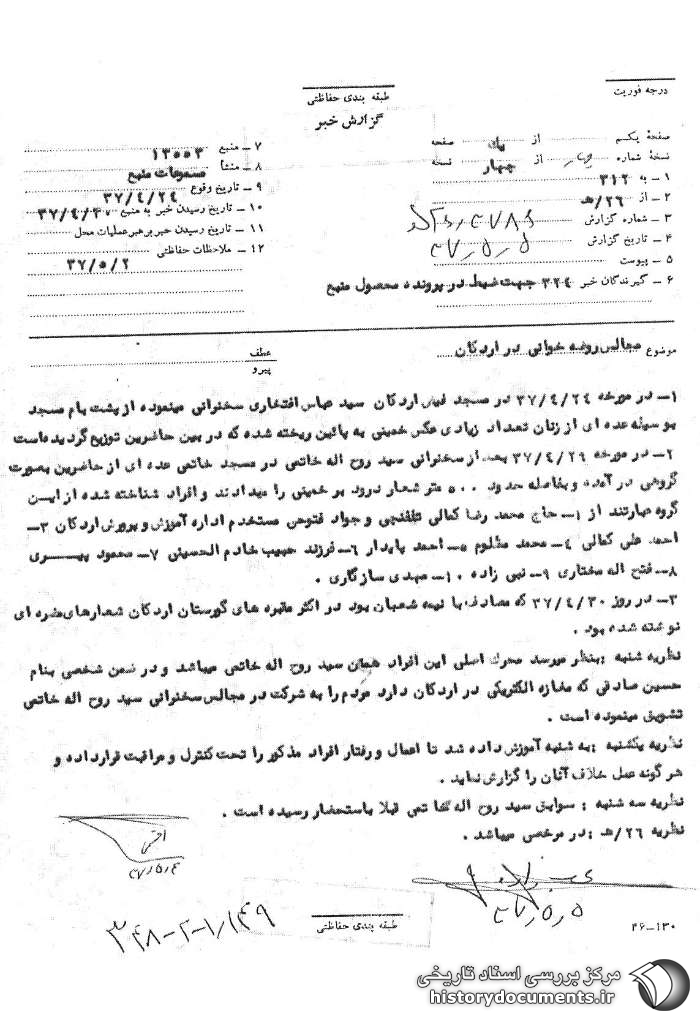 درجه فوریت
طبقه بندی حفاظتی
گزارش خبر
صفحهٔ یکم از یک صفحه
نسخهٔ شماره از چهار نسخه
۱ ــ به ۳۱۲
۲ ــ از ۲۶/هـ
۳ ــ شماره گزارش
۴ ــ تاریخ گزارش ۳۷٫۵٫۵
۵ ــ پیوست
۶ ــ گیرندگان خبر ۳۲۴ جهت ضبط در پرونده محصول منبع
۷ ــ منبع ۱۳۵۵۳
۸ ــ منشأ مسموعات منبع
۹ ــ تاریخ وقوع ۳۷/۴/۲۴
۱۰ ــ تاریخ رسیدن خبر به منبع ۳۷/۴/۳۰
۱۱ ــ تاریخ رسیدن خبر برهبرعملیات محل
۱۲ ــ ملاحظات حفاظتی ۳۷/۵/۲
موضوع مجالس روضه خوانی در اردکان
عطف
پیرو
۱ــ در مورخه ۳۷/۴/۲۴ در مسجد فیض اردکان سید عباس افتخاری سخنرانی مینموده از پشت بام مسجد
بوسیله عده ای از زنان تعداد زیادی عکس خمینی به پائین ریخته شده که در بین حاضرین توزیع گردیده است
۲ــ در مورخه ۳۷/۴/۲۶ بعد از سخنرانی سید روح اله خاتمی در مسجد خاتمی عده ای از حاضرین بصورت
گروهی در آمده و بفاصله حدود ۵۰۰ متر شعار درود بر خمینی را میدادند و افراد شناخته شده از این
گروه عبارتند از ۱ــ حاج محمد رضا کمالی تفنگچی و جواد فتوحی مستخدم اداره آموزش و پرورش اردکان ۳ــ
احمد علی کمالی ۴ــ محمد مظلوم ۵ــ احمد پایدار ۶ــ فرزند حبیب خادم الحسینی ۷ــ محمود پیـــری
۸ــ فتح اله مختاری ۹ــ نبی زاده ۱۰ــ مهدی سازگاری .
۳ــ در روز ۳۷/۴/۳۰ که مصادف با نیمه شعبان بود در اکثر مقبره های گورستان اردکان شعارهای مضره ای
نوشته شده بود .
نظریه شنبه :بنظر میرسد محرک اصلی این افراد همان سید روح اله خاتمی میباشد و در ضمن شخصی بنام
حسین صادقی که مغازه الکتریکی در اردکان دارد مردم را به شرکت در مجالس سخنرانی سید روح اله خاتمی
تشویق مینموده است .
نظریه یکشنبه :به شنبه آموزش داده شد تا اعمال و رفتار افراد مذکور را تحت کنترل و مراقبت قرارداده و
هر گونه عمل خلاف آنان را گزارش نماید .
نظریه سه شنبه : سوابق سید روح اله خاتمی قبلا باستحضار رسیده است .
نظریه ۲۶/هـ :در مرخصی میباشد .
۳۷٫۵٫۴
۳۷٫۵٫۵
۳۴۸-۲-۱٫۱۴۹
طبقه بندی حفاظتی
۲۶ــ۱۳۰
مرکز بررسی اسناد تاریخی
historydocuments.ir